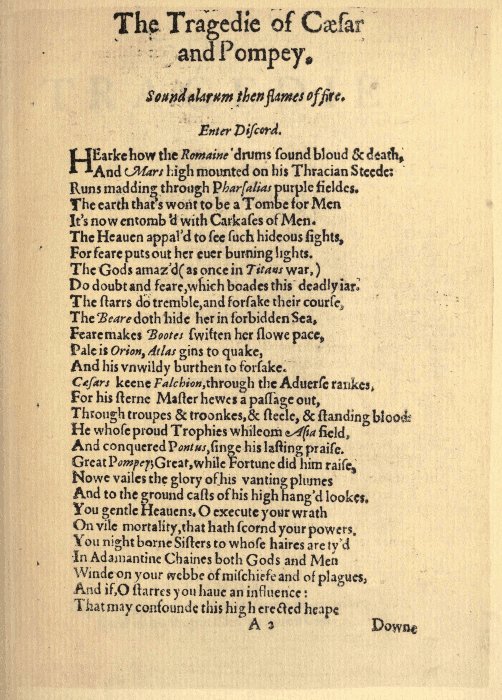 The Tragedie of Cæſar
and Pompey.
Sound alarum then flames of fire.
Enter Diſcord.
HEarke how the Romaine drums ſound bloud & death,
And Mars high mounted on his Thracian Steede:
Runs madding through Pharſalias purple fieldes.
The earth that's wont to be a Tombe for Men
It's now entomb'd with Carkaſes of Men.
The Heauen appal'd to ſee ſuch hideous ſights,
For feare puts out her euer burning lights.
The Gods amaz'd (as once in Titans war,)
Do doubt and feare, which boades this deadly iar.
The ſtarrs do tremble, and forſake their courſe,
The Beare doth hide her in forbidden Sea,
Feare makes Bootes ſwiften her ſlowe pace,
Pale is Orion, Atlas gins to quake,
And his vnwildy burthen to forſake.
Cæſars keene Falchion, through the Aduerſe rankes,
For his ſterne Maſter hewes a paſſage out,
Through troupes & troonkes, & ſteele, & ſtanding blood:
He whoſe proud Trophies whileom Aſia field,
And conquered Pontus, ſinge his laſting praiſe.
Great Pompey; Great, while Fortune did him raiſe,
Nowe vailes the glory of his vanting plumes
And to the ground caſts of his high hang'd lookes.
You gentle Heauens, O execute your wrath
On vile mortality, that hath ſcornd your powers.
You night borne Siſters to whoſe haires are ty'd
In Adamantine Chaines both Gods and Men
Winde on your webbe of miſchiefe and of plagues,
And if, O ſtarres you haue an influence:
That may confounde this high erected heape
A 2 Downe